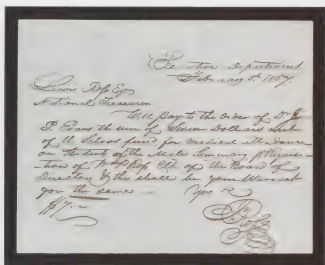 Executive Department
February 5th 1857.
Lewis Ross Esq
National Treasurer
Will pay to the order of Dr
J. Evans the sum of Seven Dollars out
of the School fund for medical attendance
on the of the Male Seminary pr Requisi-
tion of Clk of the Board of
Directors & this shall be your Warrant
for the same
Yrs
$7.—
Jno Ross